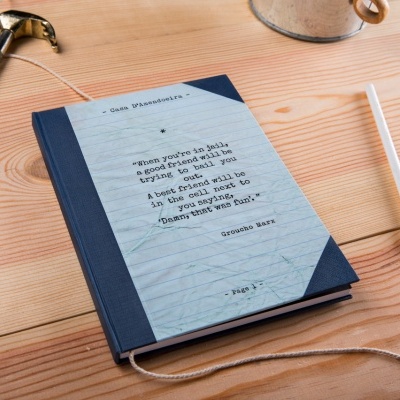 - Casa D'Amendoeira -
*
"When you're in jail,
a good friend will be
trying to bail you
out.
A best friend will be
in the cell next to
you saying,
'Damn, that was fun'."
Groucho Marx
- Page 1 -